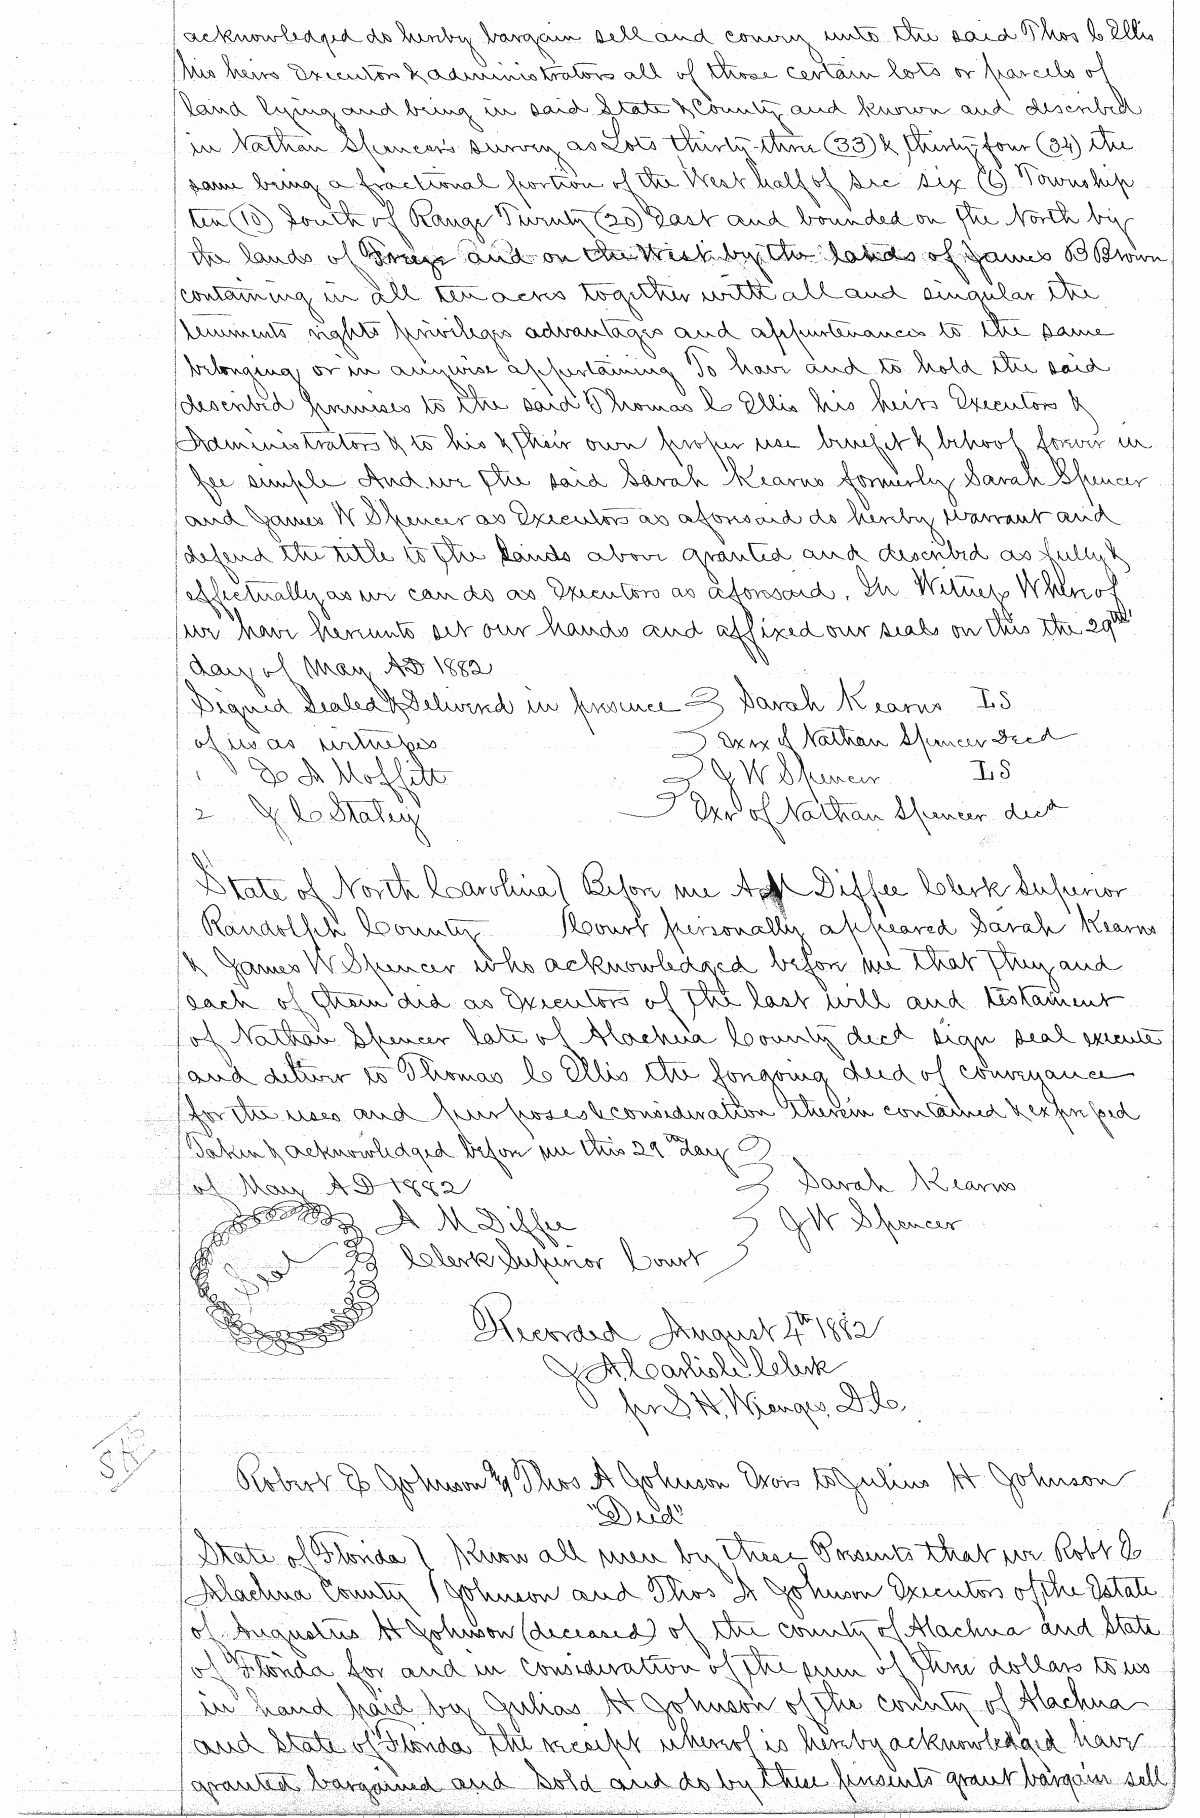 acknowledged do hereby bargain sell and convey unto the said Thos C Ellis
his heirs Executors & administrators all of those certain lots or parcels of
land lying and being in said State & County and known and described
in Nathan Spencer's survey as Lots thirty-three (33) & thirty-four (34) the
same being a fractional portion of the West half of sec six (6) Township
ten (10) South of Range Twenty (20) East and bounded on the North by
the lands of and on the West by the lands of James B Brown
containing in all ten acres together with all and singular the
tenements rights privileges advantages and appurtenances to the same
belonging or in anywise appertaining To have and to hold the said
described premises to the said Thomas C Ellis his heirs Executors &
Administrators & to his & their own proper use benefit & behoof forever in
fee simple And we the said Sarah Kearns formerly Sarah Spencer
and James W Spencer as Executors as aforesaid do hereby warrant and
defend the title to the lands above granted and described as fully &
effectually as we can do as Executors as aforesaid. In Witness Whereof
we have hereunto set our hands and affixed our seals on this the 29th
day of May AD 1882
Signed Sealed & Delivered in presence Sarah Kearns LS
of us as witnesses Exrx of Nathan Spencer Decd
1 Moffitt J W Spencer LS
2 J C Staley Exr of Nathan Spencer decd
State of North Carolina) Before me A M Diffee Clerk Superior
Randolph County Court personally appeared Sarah Kearns
& James W Spencer who acknowledged before me that they and
each of them did as Executors of the last will and testament
of Nathan Spencer late of Alachua County decd sign seal execute
and deliver to Thomas C Ellis the foregoing deed of conveyance
for the uses and purposes & consideration therein contained & expressed
Taken & acknowledged before me this 29th day
of May AD 1882 Sarah Kearns
A M Diffee J W Spencer
Seal Clerk Superior Court
Recorded August 4th 1882
J A Carlisle Clerk
per S. H. Wienges, D.C.
Robert E Johnson & Thos A Johnson Exors to Julius H Johnson
"Deed"
State of Florida ) Know all men by these Presents that we Robt E
Alachua County ) Johnson and Thos A Johnson Executors of the Estate
of Augustus H Johnson (deceased) of the county of Alachua and State
of Florida for and in consideration of the sum of three dollars to us
in hand paid by Julias H Johnson of the county of Alachua
and State of Florida the receipt whereof is hereby acknowledged have
granted bargained and sold and do by these presents grant bargain sell